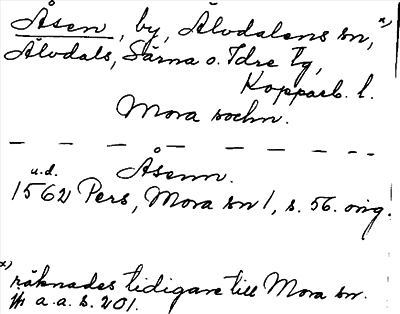 Åsen, by, Älvdalens sn, x)
Älvdals, Särna o. Idre tg,
Kopparb. l.
Mora sochn.
— — — — — — — —
Åsenn.
u.d.
1562 Pers, Mora sn 1, s. 56. orig.
x) räknades tidigare till Mora sn.
a.a. s. 201.